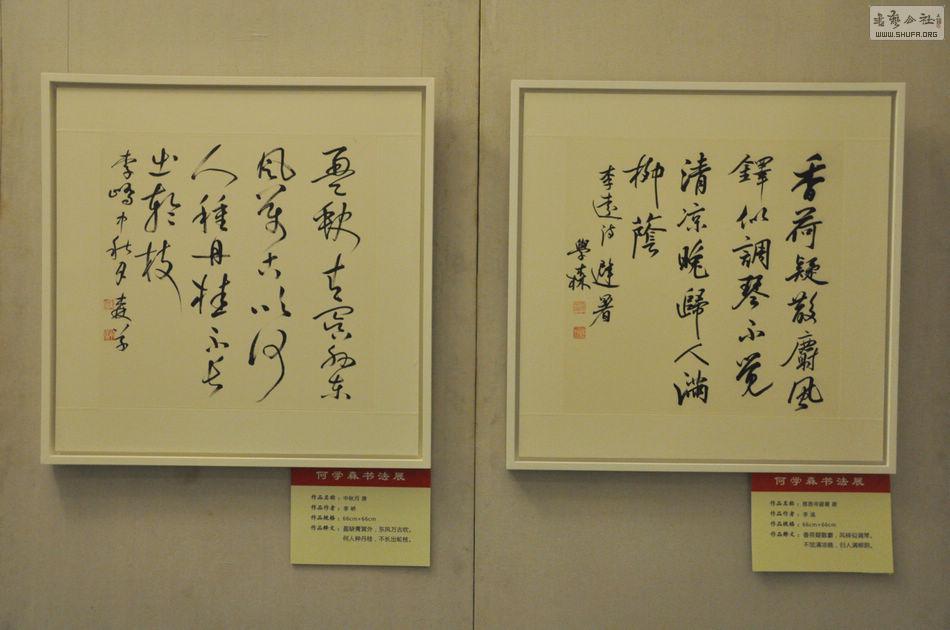 書藝公社
WWW.SHUFA.ORG
盈缺青冥外東
風萬古吹何
人種丹桂不長
出輪枝
李嶠中秋月
何学森书法展
作品名称：中秋月 唐
作品作者：李 峤
作品规格：66cm×66cm
作品释文：盈缺青冥外，东风万古吹。
何人种丹桂，不长出轮枝。
香荷疑散麝風
鐸似調琴不覺
清凉晚歸人滿
柳蔭
李遠詩避署
學森
何学森书法展
作品名称：慈恩寺避暑 唐
作品作者：李 远
作品规格：66cm×66cm
作品释文：香荷疑散麝，风铎似调琴。
不觉清凉晚，归人满柳阴。